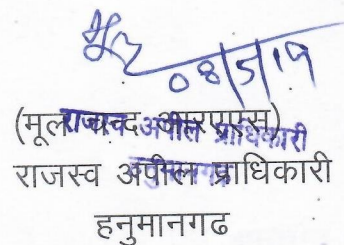 08/5/19
(मूलचन्द आरएएस)
राजस्व अपील प्राधिकारी
राजस्व अपील प्राधिकारी
हनुमानगढ